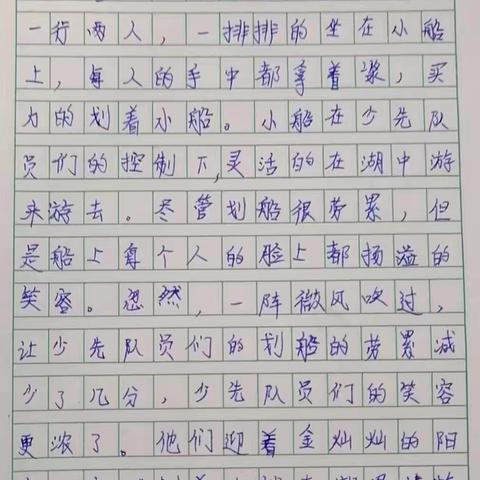 一行两人，一排排的坐在小船
上，每人的手中都拿着浆，买
力的划着小船。小船在少先队
员们的控制下，灵活的在湖中游
来游去。尽管划船很劳累，但
是船上每个人的脸上都扬溢的
笑容。忽然，一阵微风吹过，
让少先队员们的划船的劳累减
少了几分，少先队员们的笑容
更浓了。他们迎着金灿灿的阳